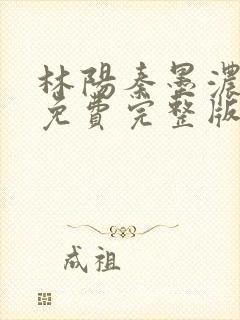 林陽秦墨濃
免費完整版
成祖